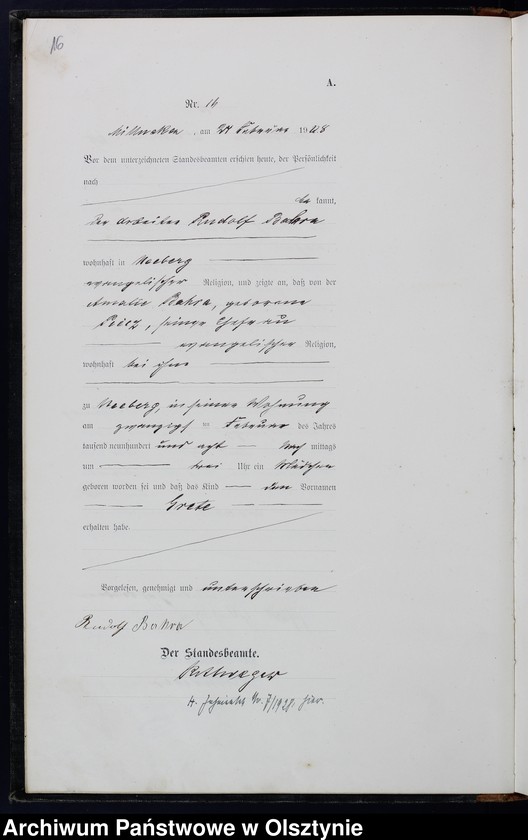 16
A.
Nr. 16
am 24 Februar 1908
Vor dem unterzeichneten Standesbeamten erschien heute, der Persönlichkeit
nach
be kannt,
der Arbeiter Rudolf Bahra
wohnhaft in
evangelischer Religion, und zeigte an, daß von der
Amalie Bahra, geborene
seiner Ehefrau
evangelischer Religion,
wohnhaft bei ihm
zu in seiner Wohnung
am zwanzigsten Februar des Jahres
tausend neunhundert und acht Nach mittags
um drei Uhr ein Mädchen
geboren worden sei und daß das Kind den Vornamen
Grete
erhalten habe.
Vorgelesen, genehmigt und unterschrieben
Rudolf Bahra
Der Standesbeamte.
Archiwum Państwowe w Olsztynie